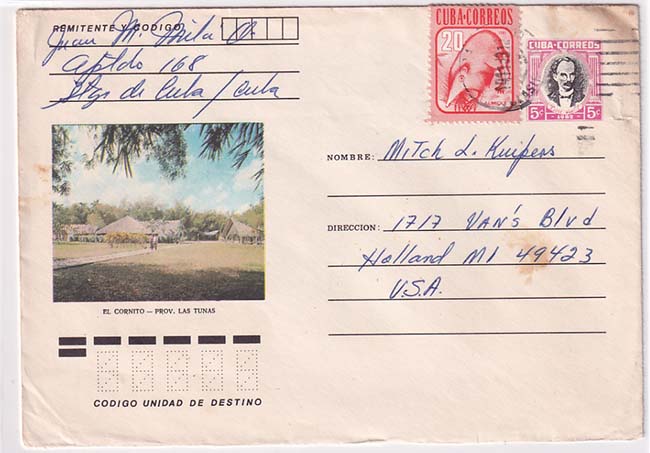 REMITENTE Y CODIGO
Juan M. Mila O.
Aptdo 168
Stgo de Cuba / Cuba
CUBA·CORREOS
20
CUBA·CORREOS
5¢ 1982 5¢
NOMBRE: Mitch L. Kuipers
DIRECCION: 1717 VAN'S Blvd
Holland MI 49423
U.S.A.
EL CORNITO — PROV. LAS TUNAS
CODIGO UNIDAD DE DESTINO